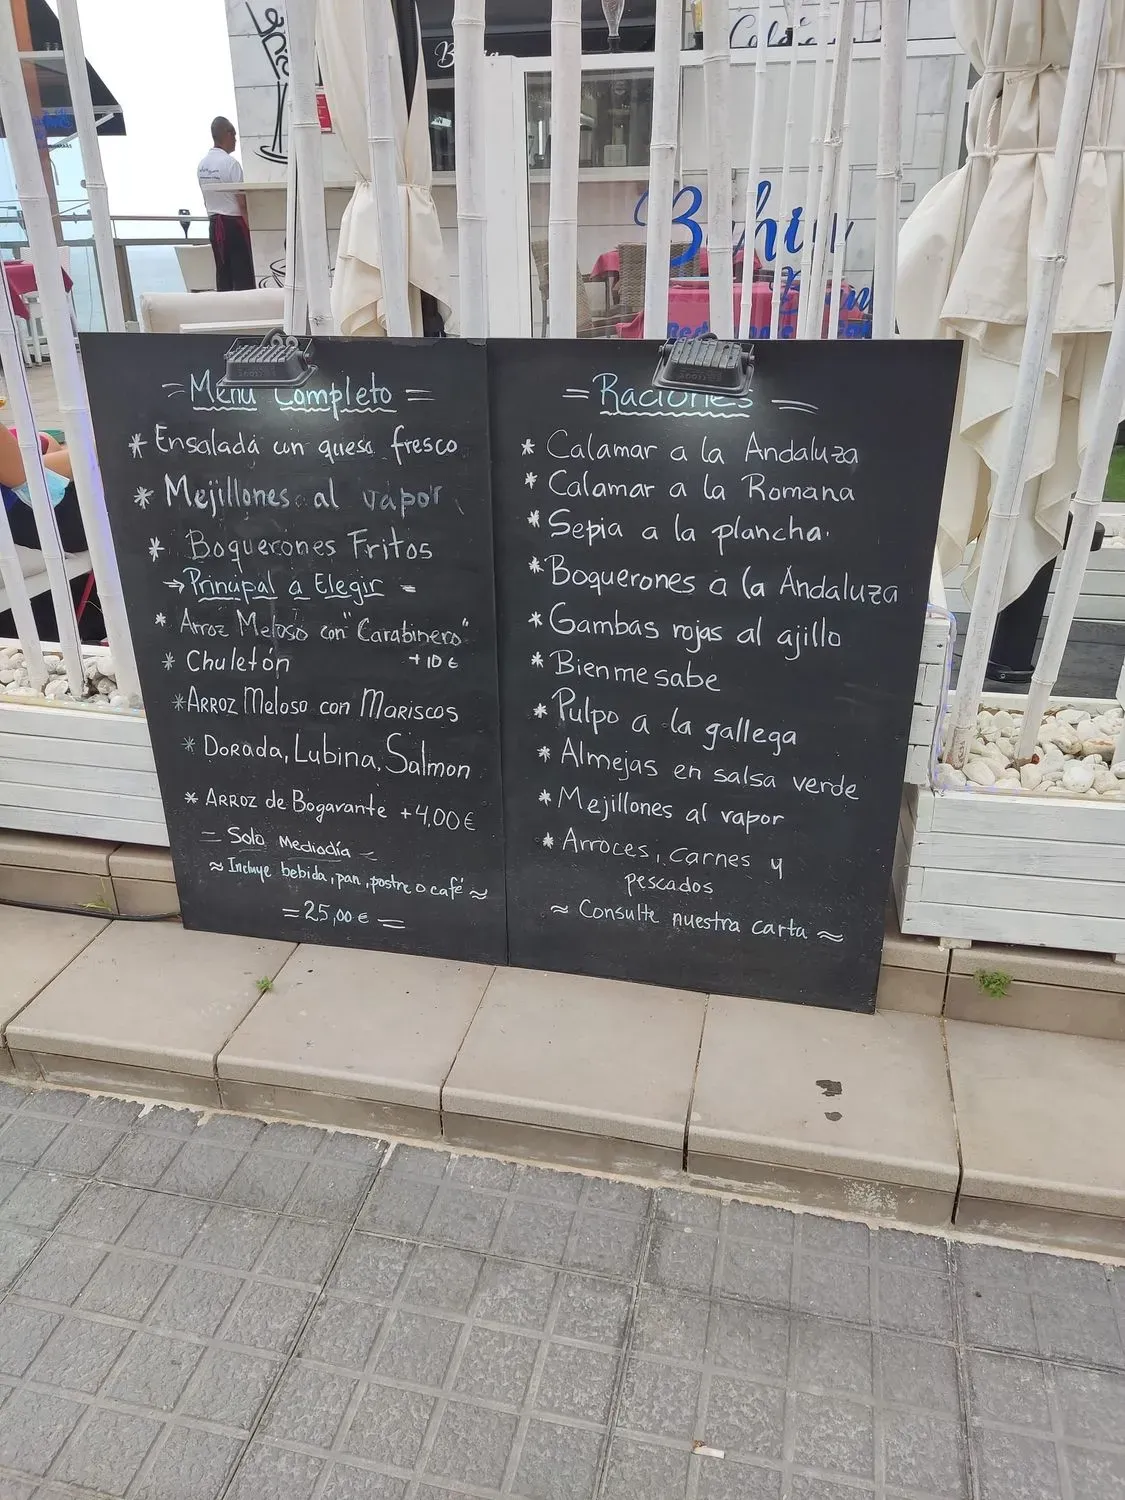 Bahia
= Menú Completo =
* Ensalada con queso fresco
* Mejillones al vapor
* Boquerones Fritos
→ Principal a Elegir =
* Arroz Meloso con "Carabinero"
+ 10 €
* Chuletón
* ARROZ Meloso con MARISCOS
* DORADA, LUBINA, Salmon
* ARROZ de Bogavante + 4,00€
= Solo Mediodía =
≈ Incluye bebida, pan, postre o café ≈
= 25,00 € =
= Raciones =
* Calamar a la Andaluza
* Calamar a la Romana
* Sepia a la plancha.
* Boquerones a la Andaluza
* Gambas rojas al ajillo
* Bienmesabe
* Pulpo a la gallega
* Almejas en salsa verde
* Mejillones al vapor
* Arroces, carnes y
pescados
≈ Consulte nuestra carta ≈